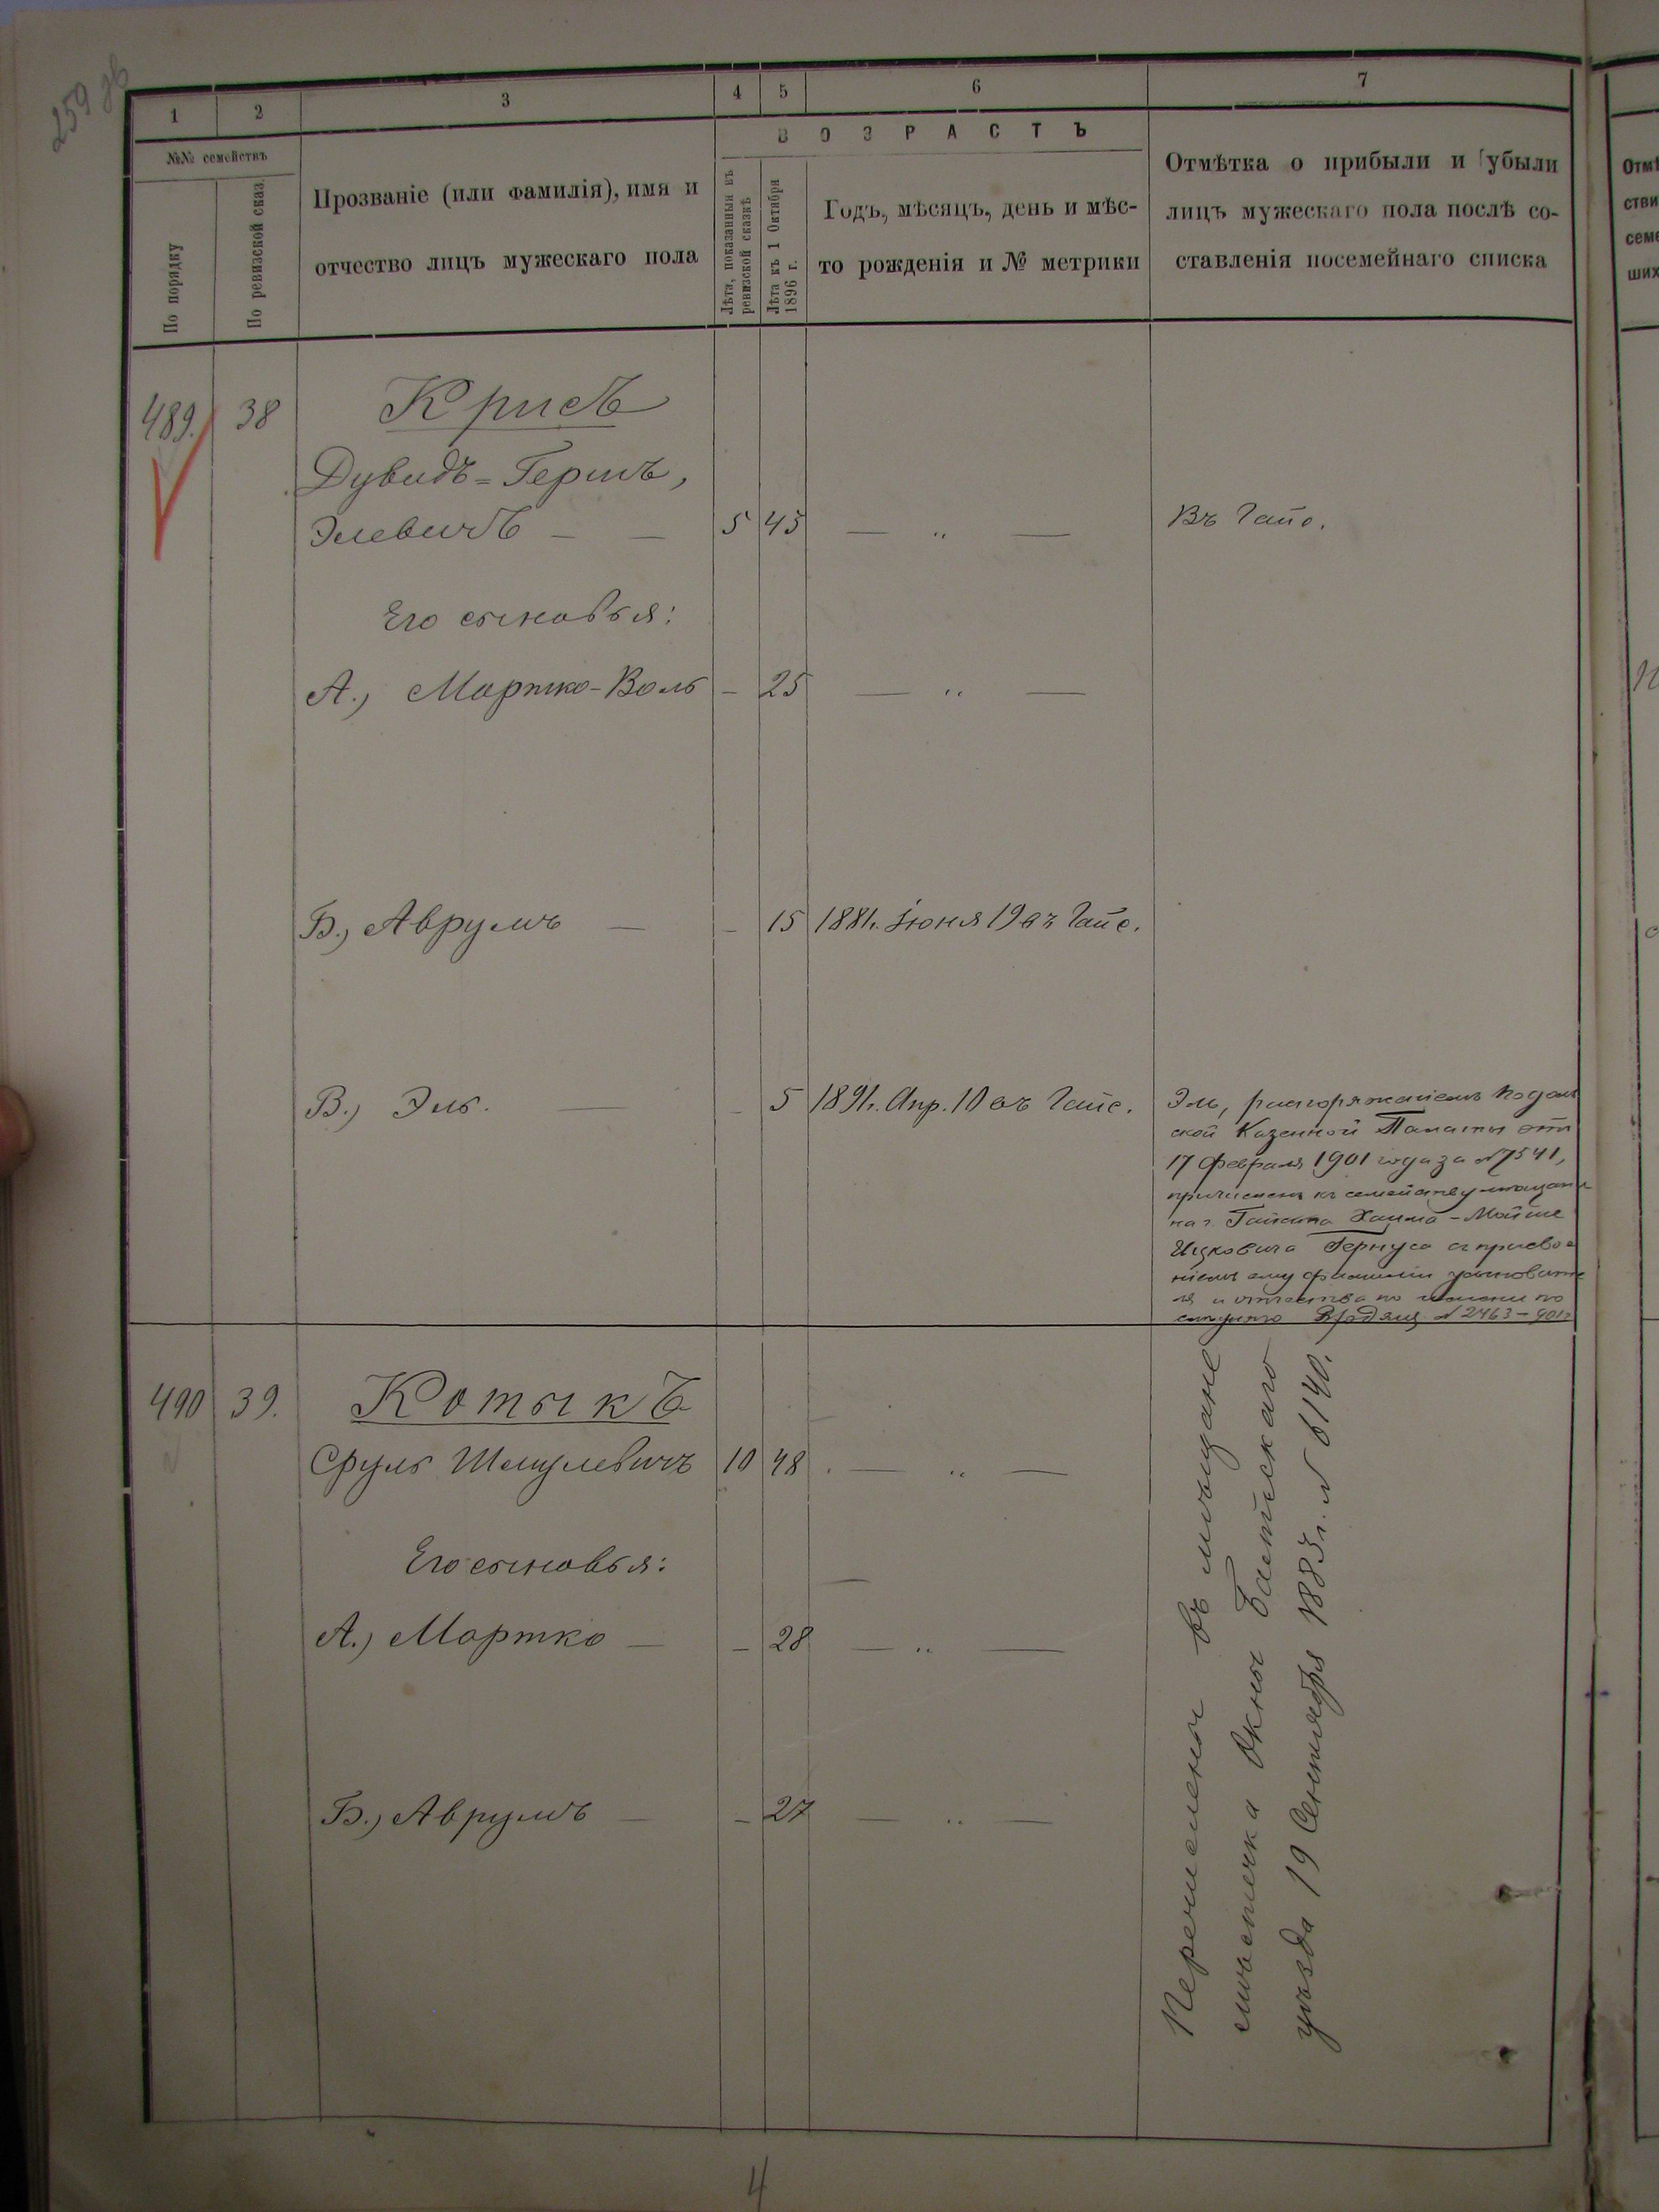 259 об
1 2 3 4 5 6 7
№№ семействъ
По порядку
По ревизской сказ.
Прозваніе (или фамилія), имя и
отчество лицъ мужескаго пола
ВОЗРАСТЪ
Лѣта, показанныя въ
ревизской сказкѣ
Лѣта къ 1 Октября
1896 г.
Годъ, мѣсяцъ, день и мѣс-
то рожденія и № метрики
Отмѣтка о прибыли и убыли
лицъ мужескаго пола послѣ со-
ставленія посемейнаго списка
489. 38 Крисъ
Дувидъ-Гершъ,
Элевичъ — — 5 45 — „ — Въ Гайс.
Его сыновья:
А.) Мортко-Воль - 25 — „ —
Б.) Аврумъ — - 15 1881г. Іюня 19 въ Гайс.
В.) Эль. — - 5 1891г. Апр. 10 въ Гайс.
Эль, распоряженіемъ Подоль
ской Казенной Палаты отъ
17 Февраля 1901 года за №7541,
причисленъ къ семейству мѣщани
на г. Гайсина Хаима-Мойше
Ицковича Гернуса съ присвое
ніемъ ему фамиліи усыновите
ля и отчества по имени по
№ 2463-901г
490 39. Котыкъ
Сруль Шмулевичъ 10 48 . — „ —
Его сыновья:
А.) Мортко — - 28 — „ —
Б.) Аврумъ — - 27 — „ —
Перечислены въ мѣщане
мѣстечка Окны Балтскаго
уѣзда 19 Сентября 1883г. № 6140.
4